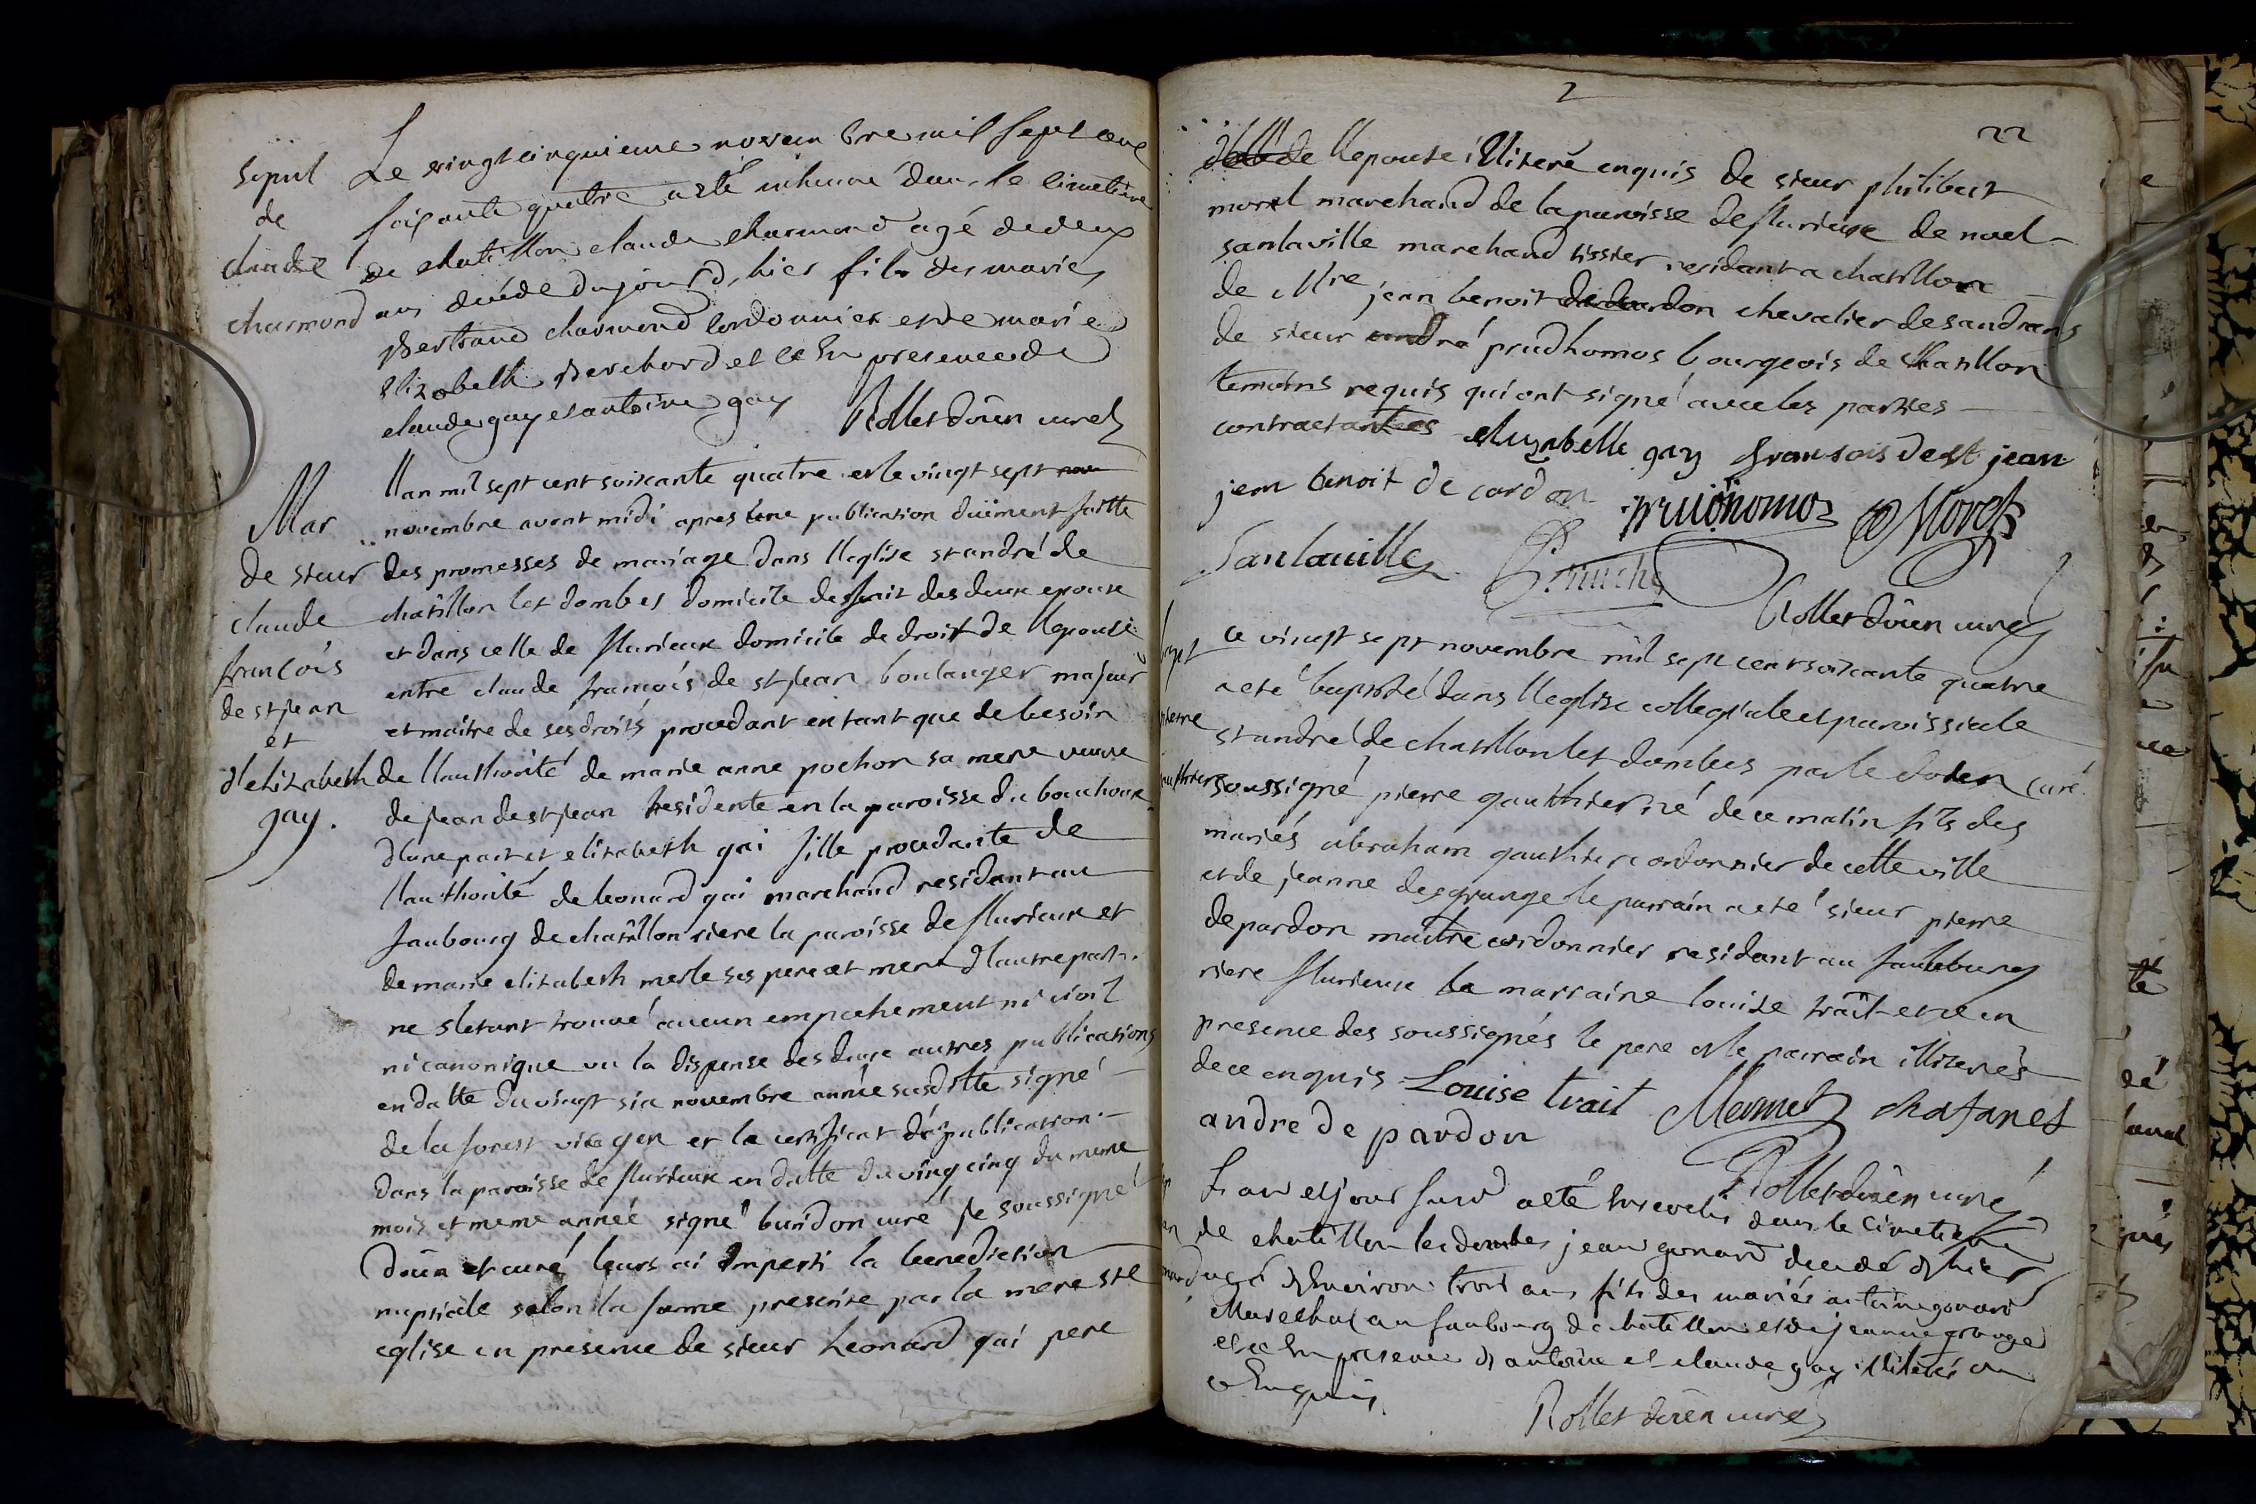 Sepul
de
claude
charmond
Le vingt cinquieme novembre mil sept cent
soixante quatre a eté inhumé dans le cimetiere
de chatillon claude charmond agé de deux
ans decédé du jour d'hier fils des mariés
Bertrand charmond cordonnier et de marie
Elizabeth Berchord et ce En presence de
claude gay et antoine gay Rollet doïen curé
Mar
de sieur
claude
françois
de st jean
et
d'elizabeth
gay.
l'an mil sept cent soixante quatre et le vingt sept
novembre avant midi apres une publication duëment faitte
des promesses de mariage dans l'eglise st andré de
châtillon les dombes domicile de fait des deux epoux
et dans celle de flurieux domicile de droit de l'epouse
entre claude françois de st jean boulanger majeur
et maitre de ses droits procedant en tant que de besoin
de l'authorité de marie anne pochon sa mere veuve
de jean de st jean residente en la paroisse du bouchoux
d'une part et elizabeth gai fille procedante de
l'authorité de leonard gai marchand residant au
faubourg de chatillon riere la paroisse de flurieux et
de marie elizabeth merle ses pere et mere d'autre part.
ne s'etant trouvé aucun empechement ni civil
ni canonique vu la dispense des deux autres publications
en datte du vingt six novembre année susditte signé
de la forest vic gen et le certificat de publication
dans la paroisse de flurieux en datte du ving cinq du meme
mois et meme année signé buridon curé je soussigné
doïen et curé leurs ai imperti la benediction
nuptiale selon la forme prescrite par la mere ste
eglise en presence de sieur Leonard gai pere
2
22
de l'epouse illiteré enquis de sieur philibert
morel marchand de la paroisse de flurieux de noel
sanlaville marchand tissier residant a chatillon
de Mre jean benoit de cardon chevalier de sandrans
de sieur andré prudhomos bourgeois de chatillon
temoins requis qui ont signé avec les parties
contractantes elizabelle gay fransois de st jean
jean benoit de cordon prudhomos Morel
Sanlaville
Rollet doïen curé
bapt
pierre
gauthier
ce vingt sept novembre mil sept cent soixante quatre
a eté baptisé dans l'eglise collegiale et paroissiale
st andré de chatillon les dombes par le doïen curé
soussigné pierre gauthier né de ce matin fils des
mariés abraham gauthier cordonnier de cette ville
et de jeanne desgrange le parrain a eté sieur pierre
depardon maitre cordonnier residant au faubourg
riere flurieux la marraine louise trait et ce en
presence des soussignés le pere et le parrain illiterés
de ce enquis Louise trait Mermet chatanet
andre de pardon
Rollet doïen curé
L'an et jour susd a eté Enseveli dans le cimetiere
de chatillon les dombes jean gonard decedé d'hier
agé d'Environ trois ans fils des mariés antoine gonard
Marechal au faubourg de chatillon et de jeanne grange
et ce En presence d'antoine et claude gay illiterés de
ce Enquis.
Rollet doïen curé